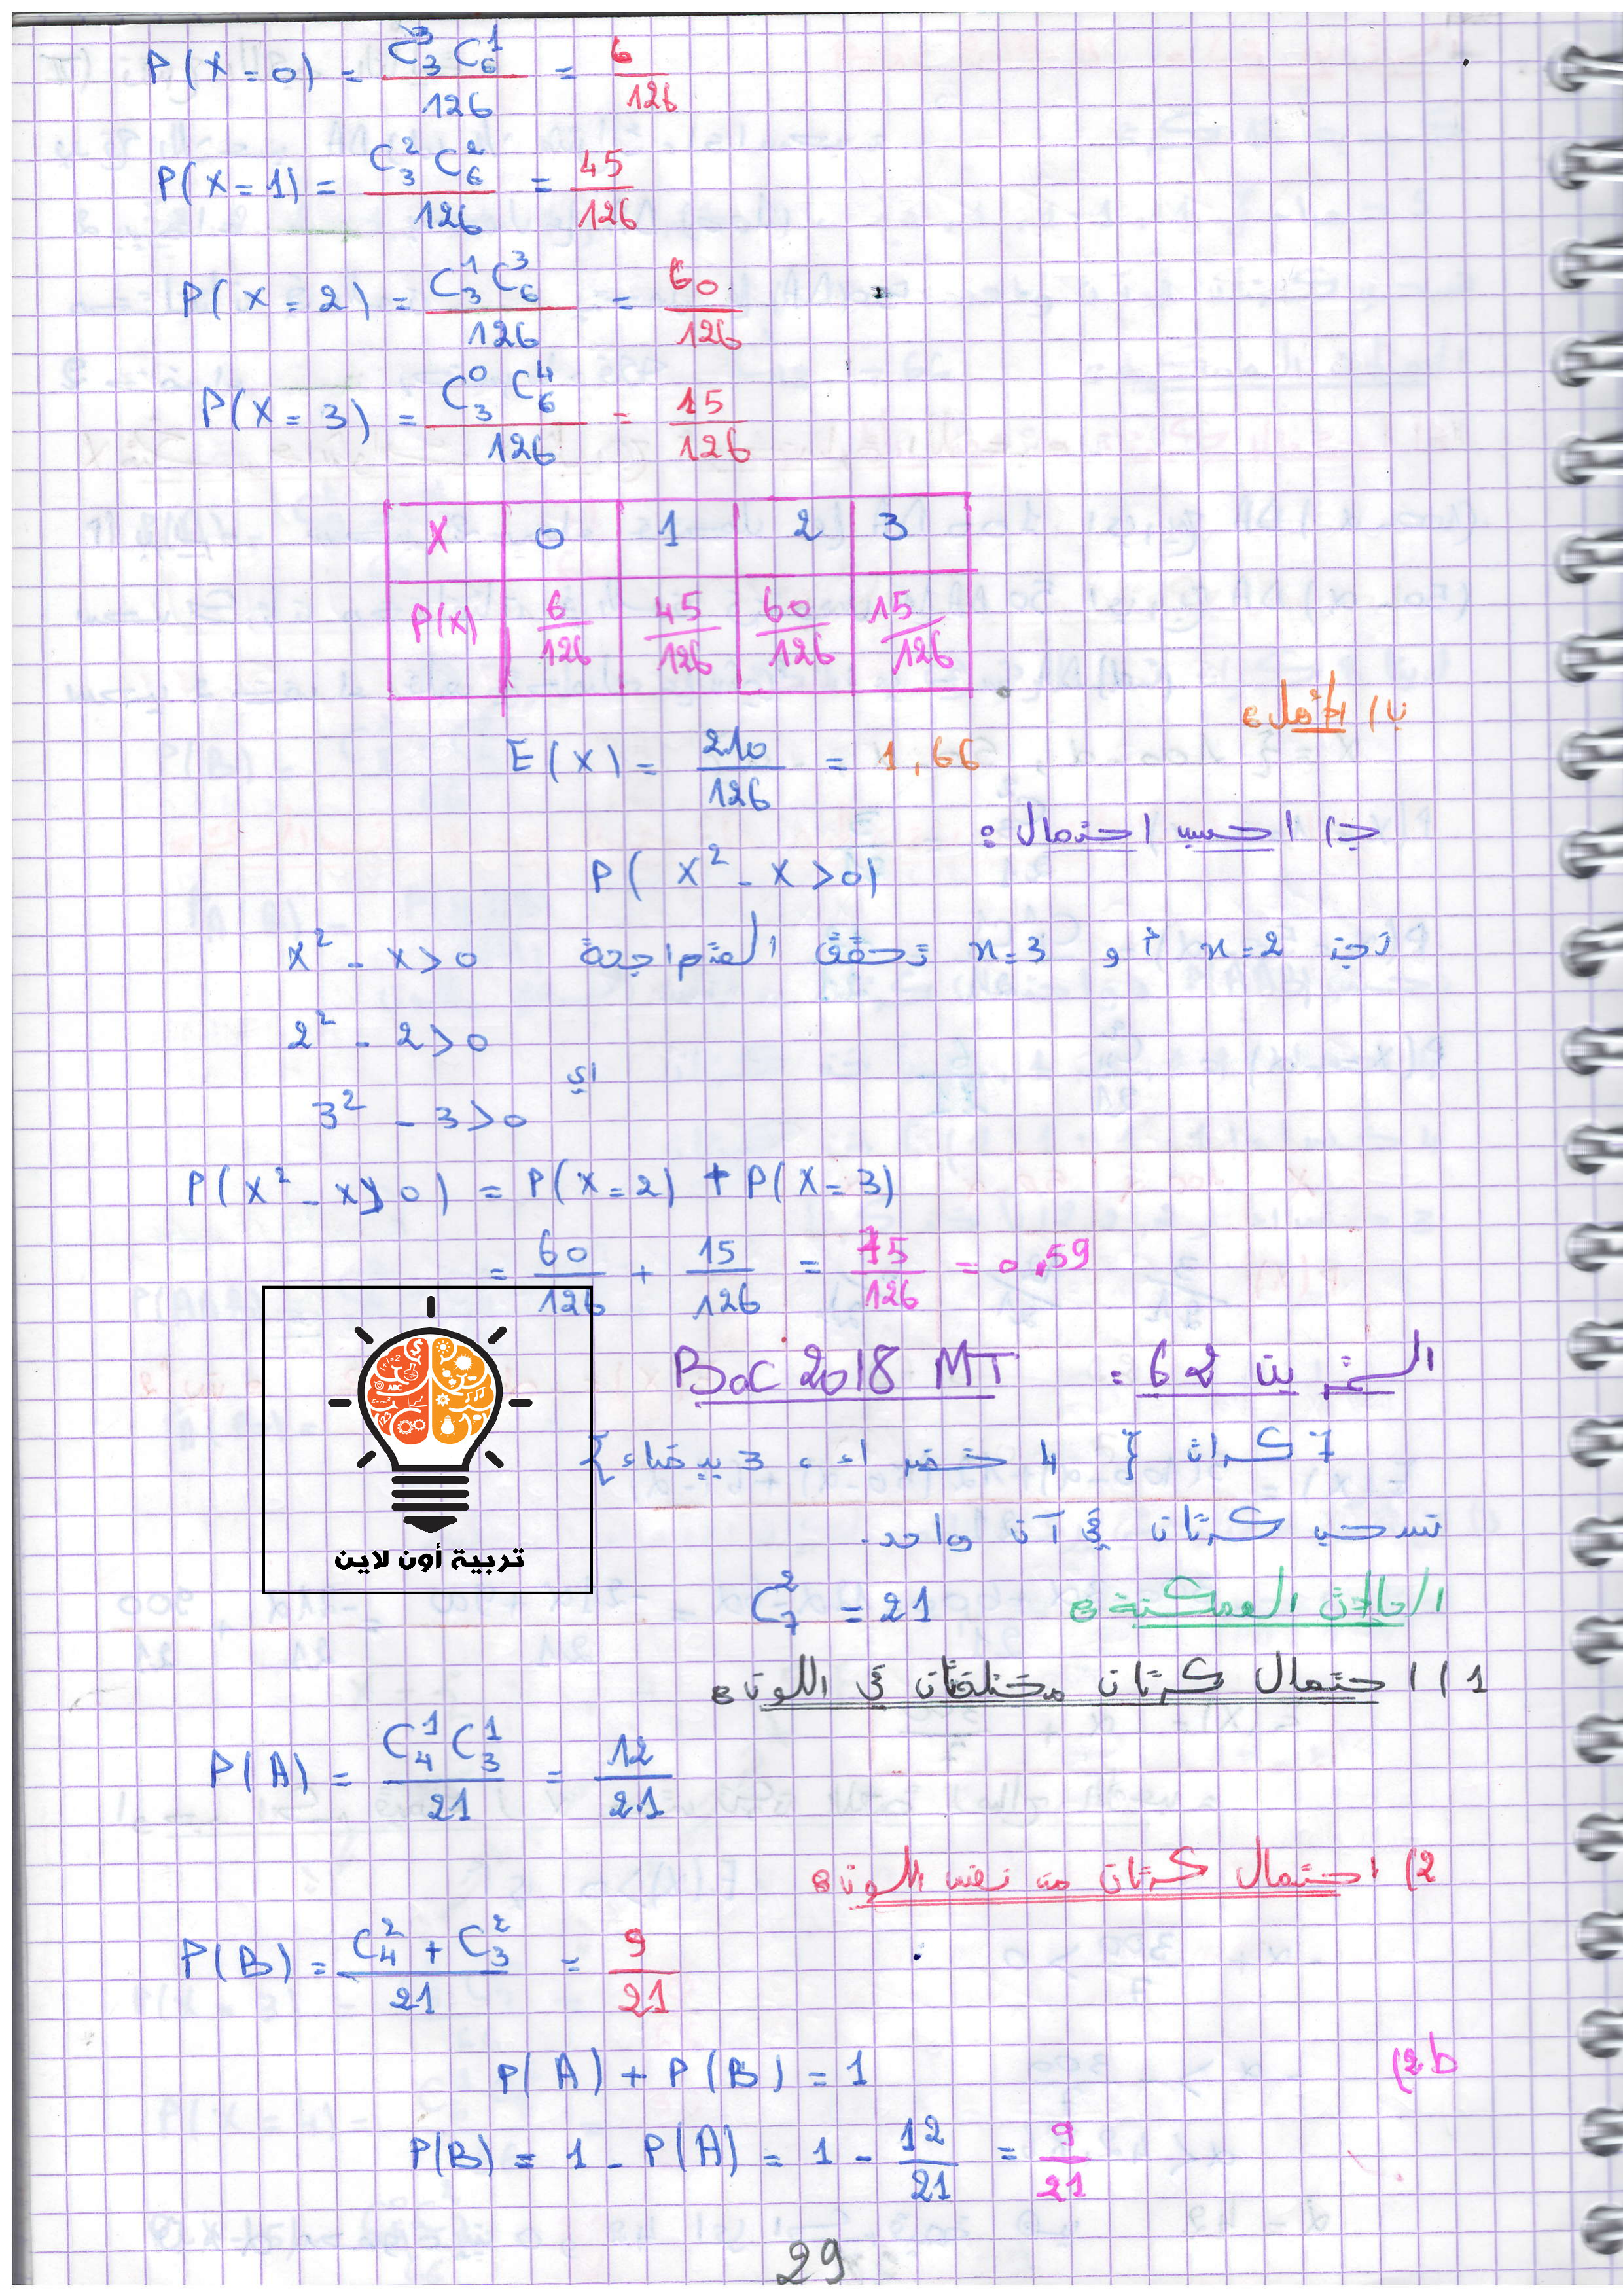 P(X=0) = C₃³ C₆¹ / 126 = 6/126
P(X=1) = C₃² C₆² / 126 = 45/126
P(X=2) = C₃¹ C₆³ / 126 = 60/126
P(X=3) = C₃⁰ C₆⁴ / 126 = 15/126
X 0 1 2 3
P(X) 6/126 45/126 60/126 15/126
ب) الأمل:
E(X) = 210/126 = 1,66
ج) احسب احتمال:
P(X² - X > 0)
نجد x=2 أو x=3 تحقق المتراجحة x² - x > 0
2² - 2 > 0
أي
3² - 3 > 0
P(X² - X > 0) = P(X=2) + P(X=3)
= 60/126 + 15/126 = 75/126 = 0,59
التمرين 62 : Bac 2018 MT
7 كرات { 4 خضراء، 3 بيضاء }
نسحب كرتان في آن واحد.
الحالات الممكنة: C₇² = 21
1) احتمال كرتان مختلفتان في اللون:
P(A) = C₄¹ C₃¹ / 21 = 12/21
2) احتمال كرتان من نفس اللون:
P(B) = C₄² + C₃² / 21 = 9/21
2b)
P(A) + P(B) = 1
P(B) = 1 - P(A) = 1 - 12/21 = 9/21
29
تربية أون لاين